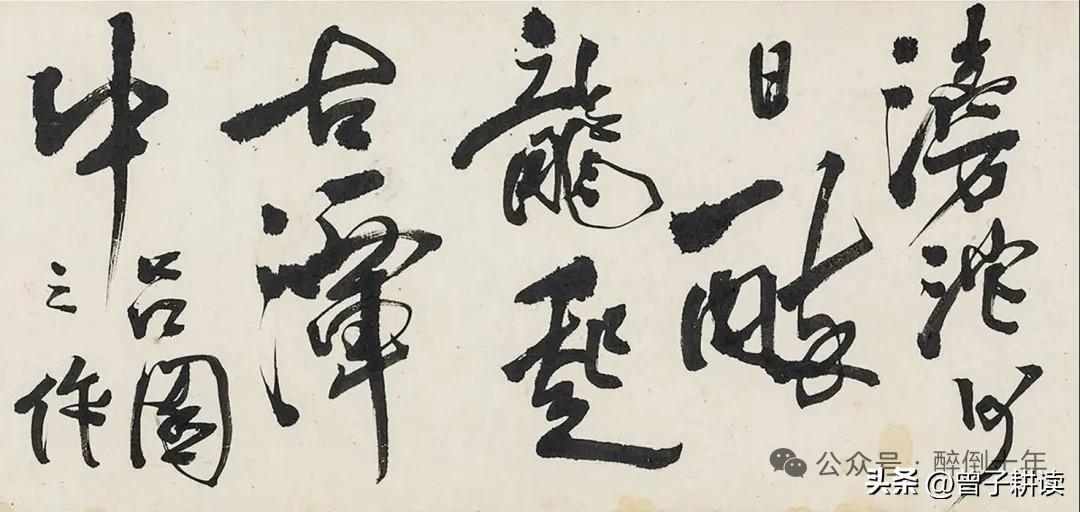 滂沱何
日醉
龍起
古潭
中
吕園
之作
公众号·醉倒十年
头条 @曾子耕读